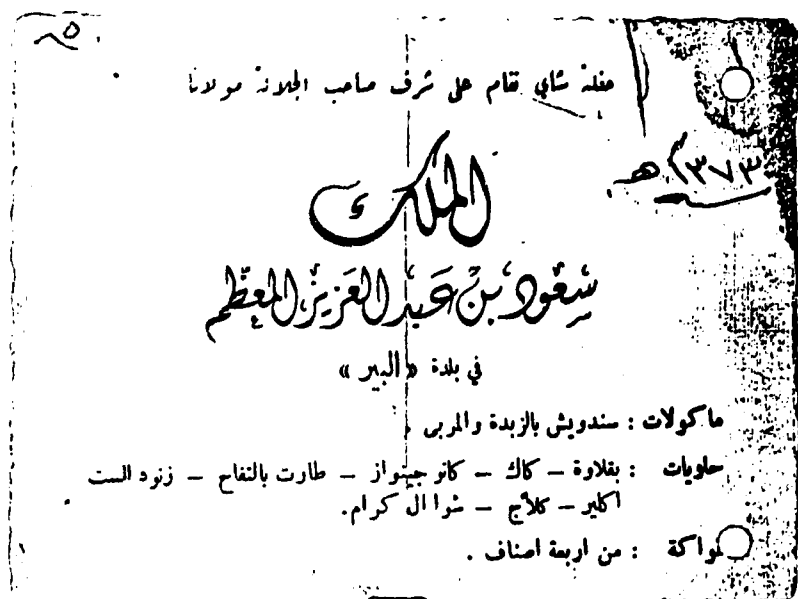 ٥
حفلة شاي تقام على شرف صاحب الجلالة مولانا
١٣٧٣ هـ
الملك
سعود بن عبد العزيز المعظم
في بلدة « البير »
ماكولات : سندويش بالزبدة والمربى .
حلويات : بقلاوة – كاك – كانو جينواز – طارت بالتفاح – زنود الست
اكلير – كلاج – شوا ال كرام.
فواكة : من اربعة اصناف .